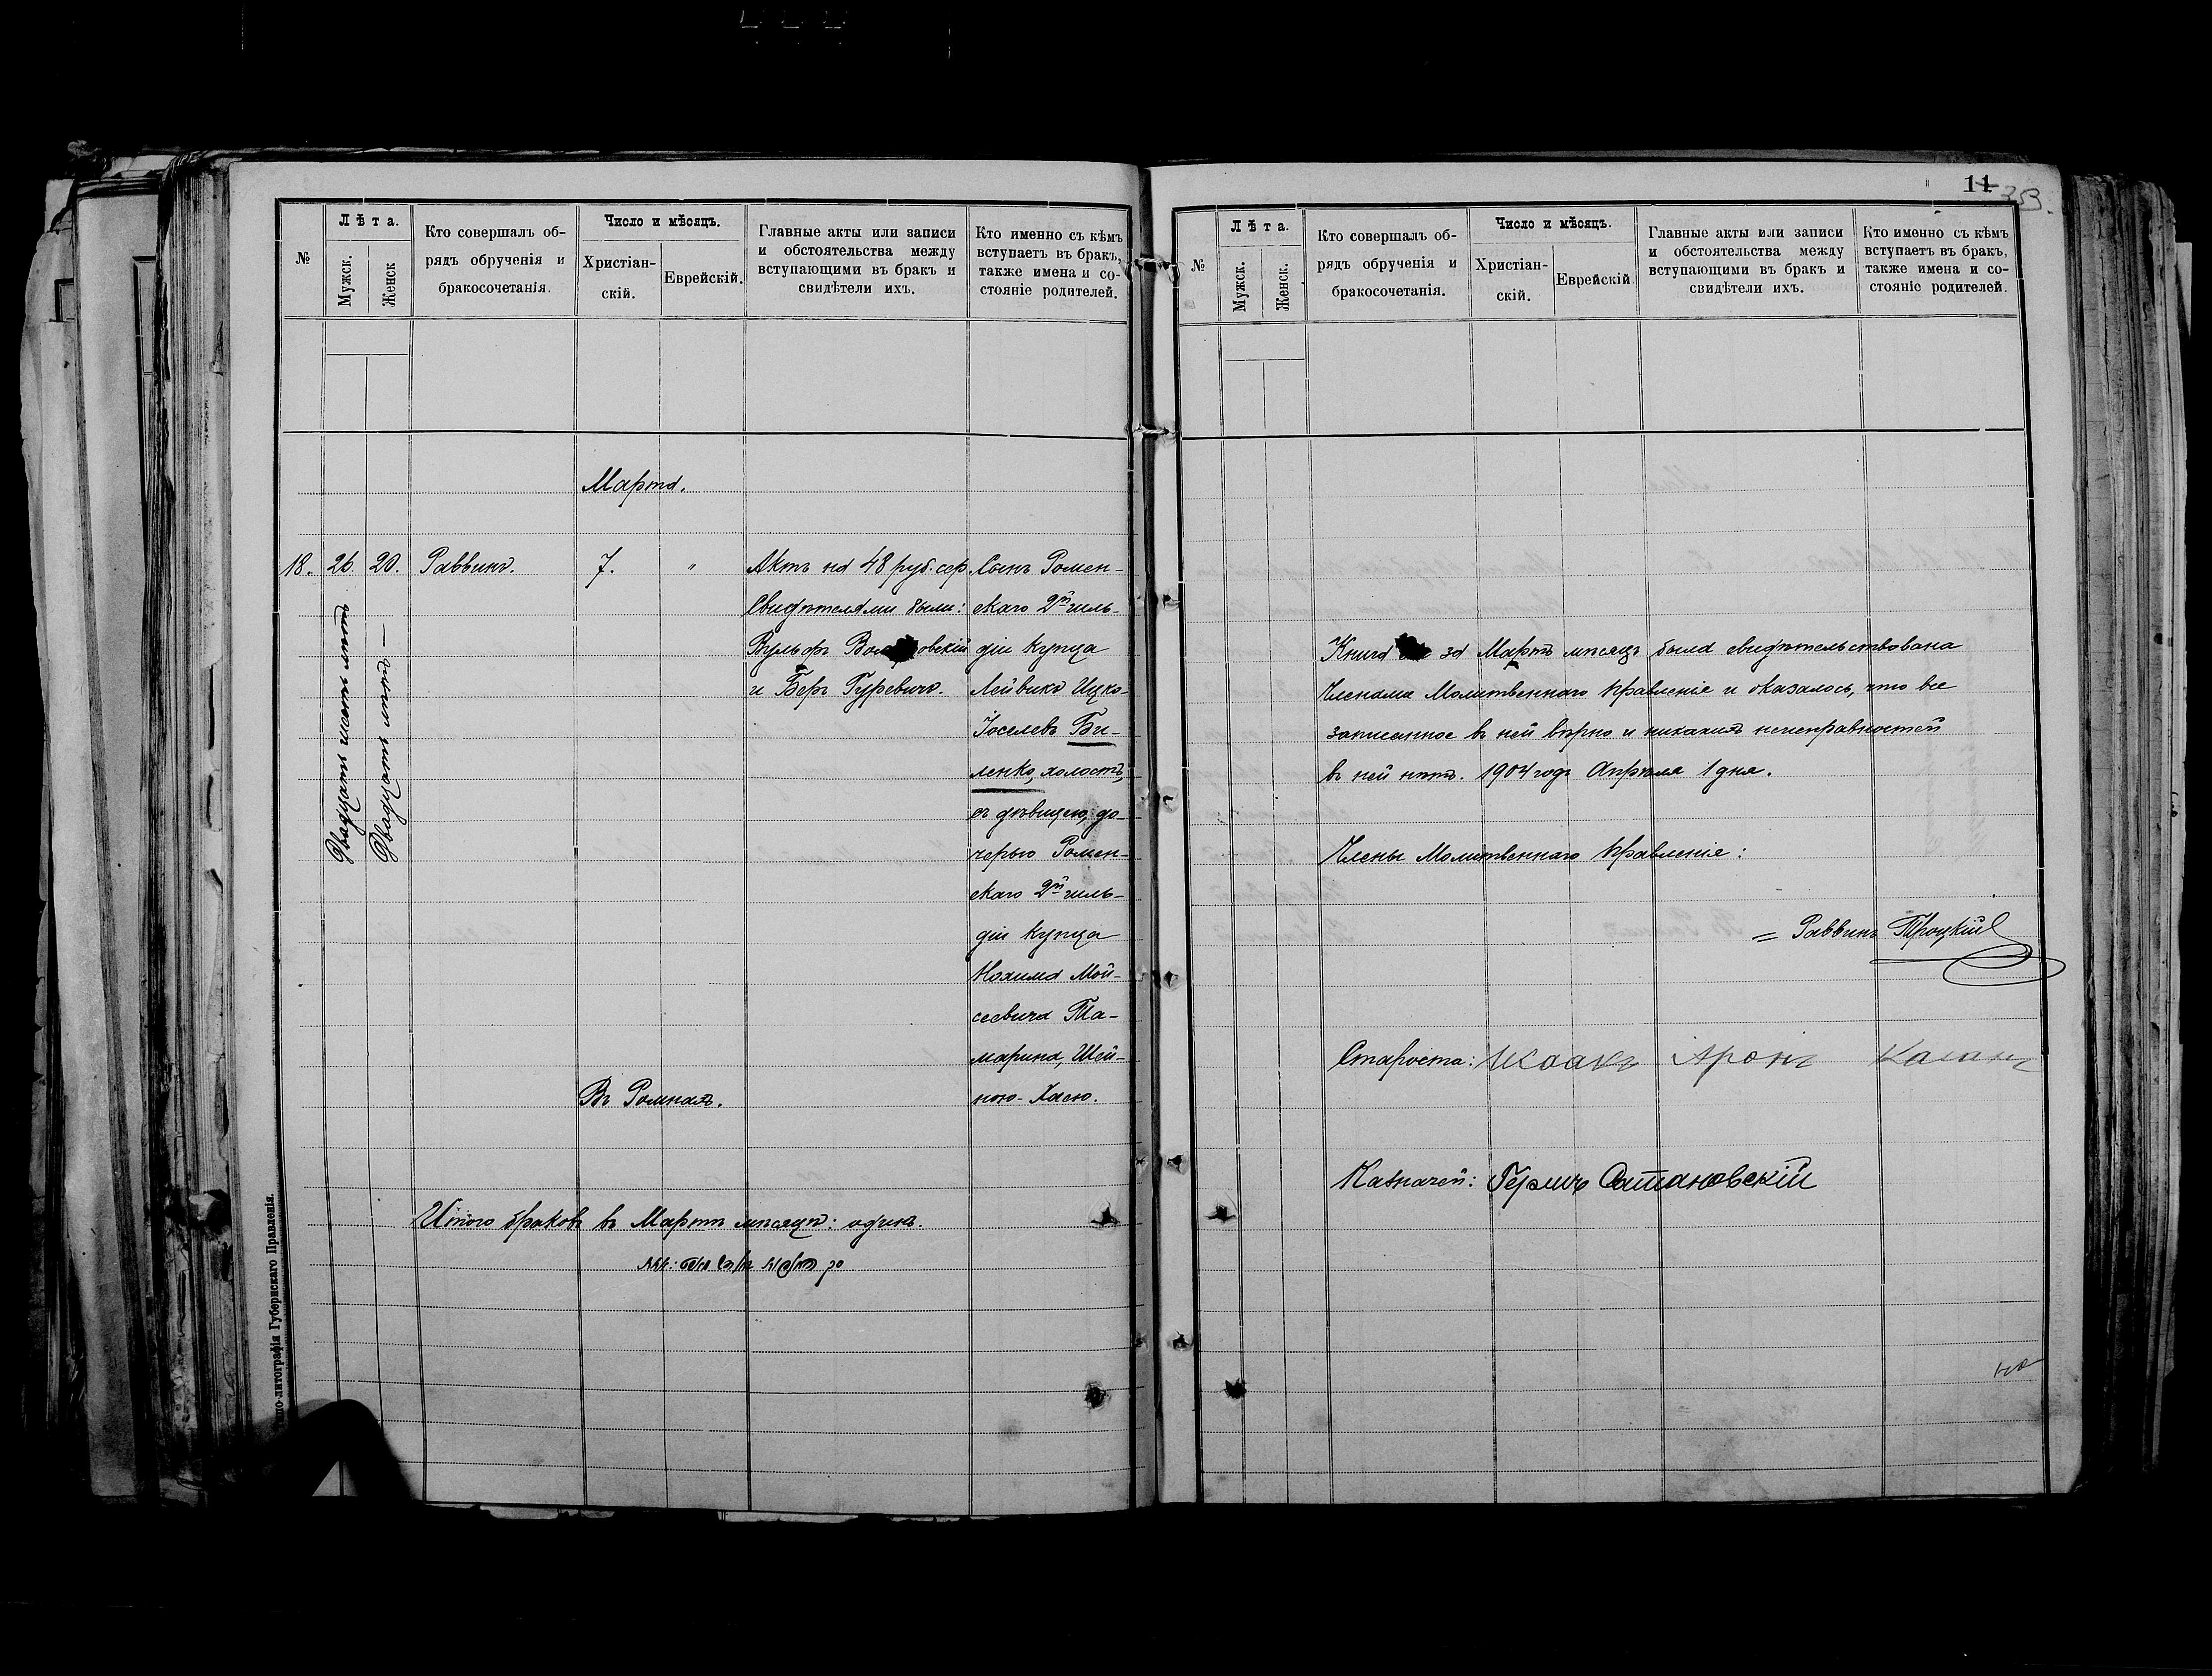 11
353.
№
Лѣта.
Мужск.
Женск
Кто совершалъ об-
рядъ обрученія и
бракосочетанія.
Число и мѣсяцъ.
Христіан-
скій.
Еврейскій.
Главные акты или записи
и обстоятельства между
вступающими въ бракъ и
свидѣтели ихъ.
Кто именно съ кѣмъ
вступаетъ въ бракъ,
также имена и со-
стояніе родителей.
Марта.
18.
26
Двадцать шесть лѣтъ
20.
Двадцать лѣтъ —
Раввинъ.
7.
"
Въ Ромнахъ.
Актъ на 48 руб. сер.
Свидѣтелями были:
Вульфъ овскій
и Беръ Гуревичъ.
Сынъ Ромен-
скаго 2й гиль-
діи купца
Лейвикъ Ицко-
Іоселевъ Би-
ленко, холостъ,
съ дѣвицею, до-
черью Ромен-
скаго 2й гиль-
діи купца
Нохима Мой-
сеевича Та-
марина, Шей-
ною-Хасею.
Итого браковъ въ Мартѣ мѣсяцѣ: одинъ.
но-литографія Губернскаго Правленія.
№
Лѣта.
Мужск.
Женск.
Кто совершалъ об-
рядъ обрученія и
бракосочетанія.
Число и мѣсяцъ.
Христіан-
скій.
Еврейскій
Главные акты или записи
и обстоятельства между
вступающими въ бракъ и
свидѣтели ихъ.
Кто именно съ кѣмъ
вступаетъ въ бракъ,
также имена и со-
стояніе родителей.
Книга за Мартъ мѣсяцъ была свидѣтельствована
Членами Молитвеннаго Правленіе и оказалось, что все
записанное въ ней вѣрно и никакихъ неисправностей
въ ней нѣтъ. 1904 годъ Апрѣля 1 дня.
Члены Молитвеннаго Правленіе:
= Раввинъ Троцкій
Староста: Исаакъ Аронъ Каганъ
Казначей: Гершъ Сатановскій